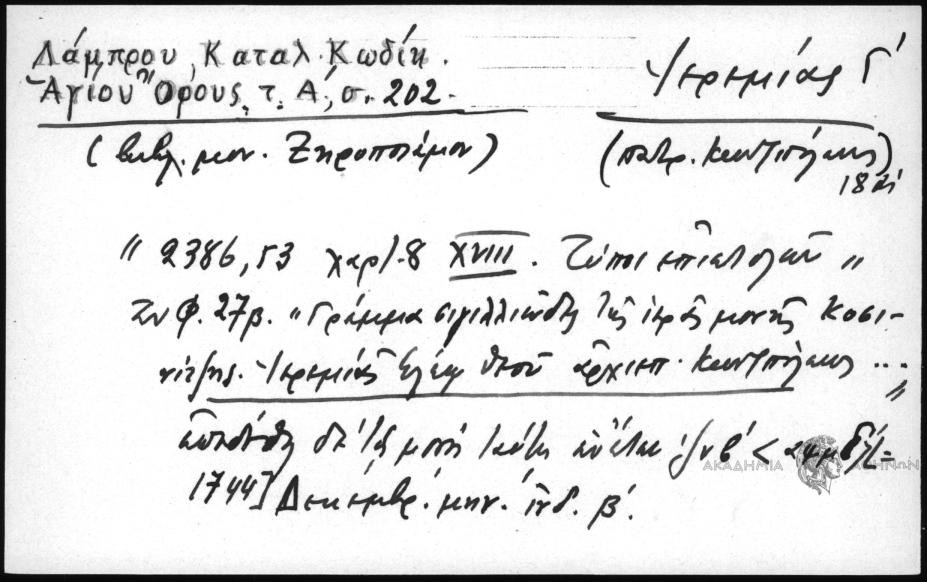 Λάμπρου, Καταλ. Κωδίκ.
Ἁγίου Ὄρους, τ. Α΄, σ. 202.
Ἱερεμίας Γ΄
(βιβλ. μον. Ξηροποτάμου)
(πατρ. Κων]πόλεως)
18 αἰ
" 2386, 53 χαρ]. 8 XVIII. Τύποι ἐπιστολῶν "
Ἐν φ. 27β. "Γράμμα σιγιλλιῶδες τῆς ἱερᾶς μονῆς Κοσι-
νίτζης. Ἱερεμίας ἐλέῳ Θεοῦ ἀρχιεπ. Κων]πόλεως ... "
δὲ τῇ μονῇ ταύτῃ <αψμδ΄]=
1744] Δεκεμβρ. μην. ἰνδ. β΄.
ΑΚΑΔΗΜΙΑ ΑΘΗΝΩΝ